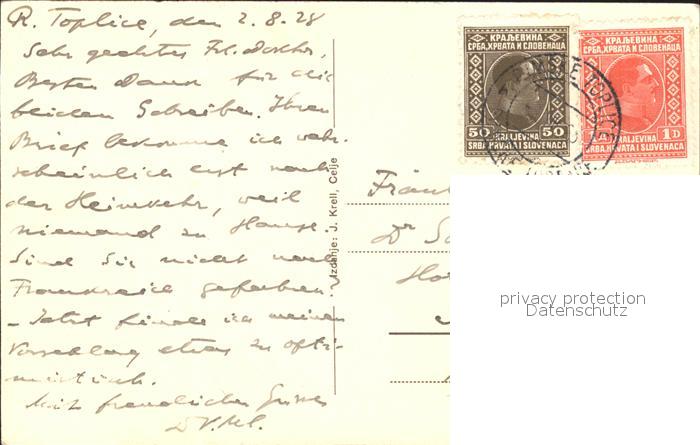 R. Toplice, den 2.8.28
Sehr geehrtes Frl. Doktor,
Besten Dank für die
beiden Schreiben. Ihren
Brief bekomme ich wahr-
scheinlich erst nach
der Heimkehr, weil
niemand zu Hause.
Sind Sie nicht nach
Frankreich gefahren?
– Jetzt finde ich meinen
Vorschlag etwas zu opti-
mistisch.
Mit freundlichen Grüssen
Izdanje: J. Krell, Celje
КРАЉЕВИНА
СРБА, ХРВАТА И СЛОВЕНАЦА
50 50
KRALJEVINA
SRBA, HRVATA I SLOVENACA
КРАЉЕВИНА
СРБА, ХРВАТА И СЛОВЕНАЦА
1D
KRALJEVINA
SRBA, HRVATA I SLOVENACA
TOPLICE
Fräu
Dr
privacy protection
Datenschutz